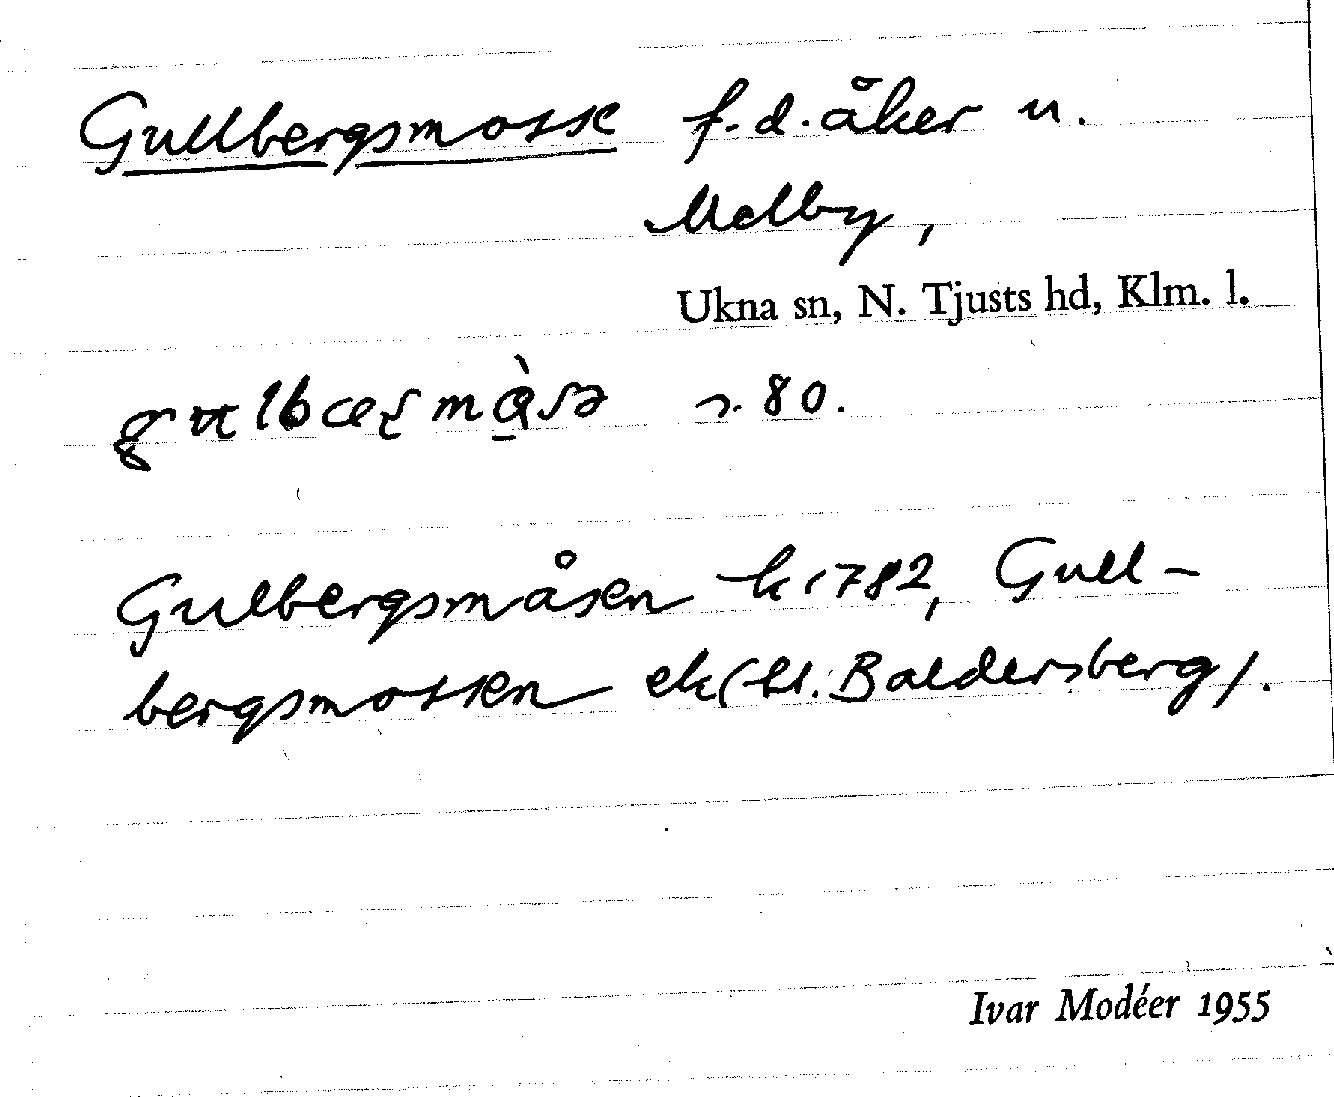 Gullbergsmosse f.d. åker u.
Melby,
Ukna sn, N. Tjusts hd, Klm. l.
80.
Gulbergsmåsen k 1782, Gull-
bergsmossen ek (bl. Baldersberg).
Ivar Modéer 1955